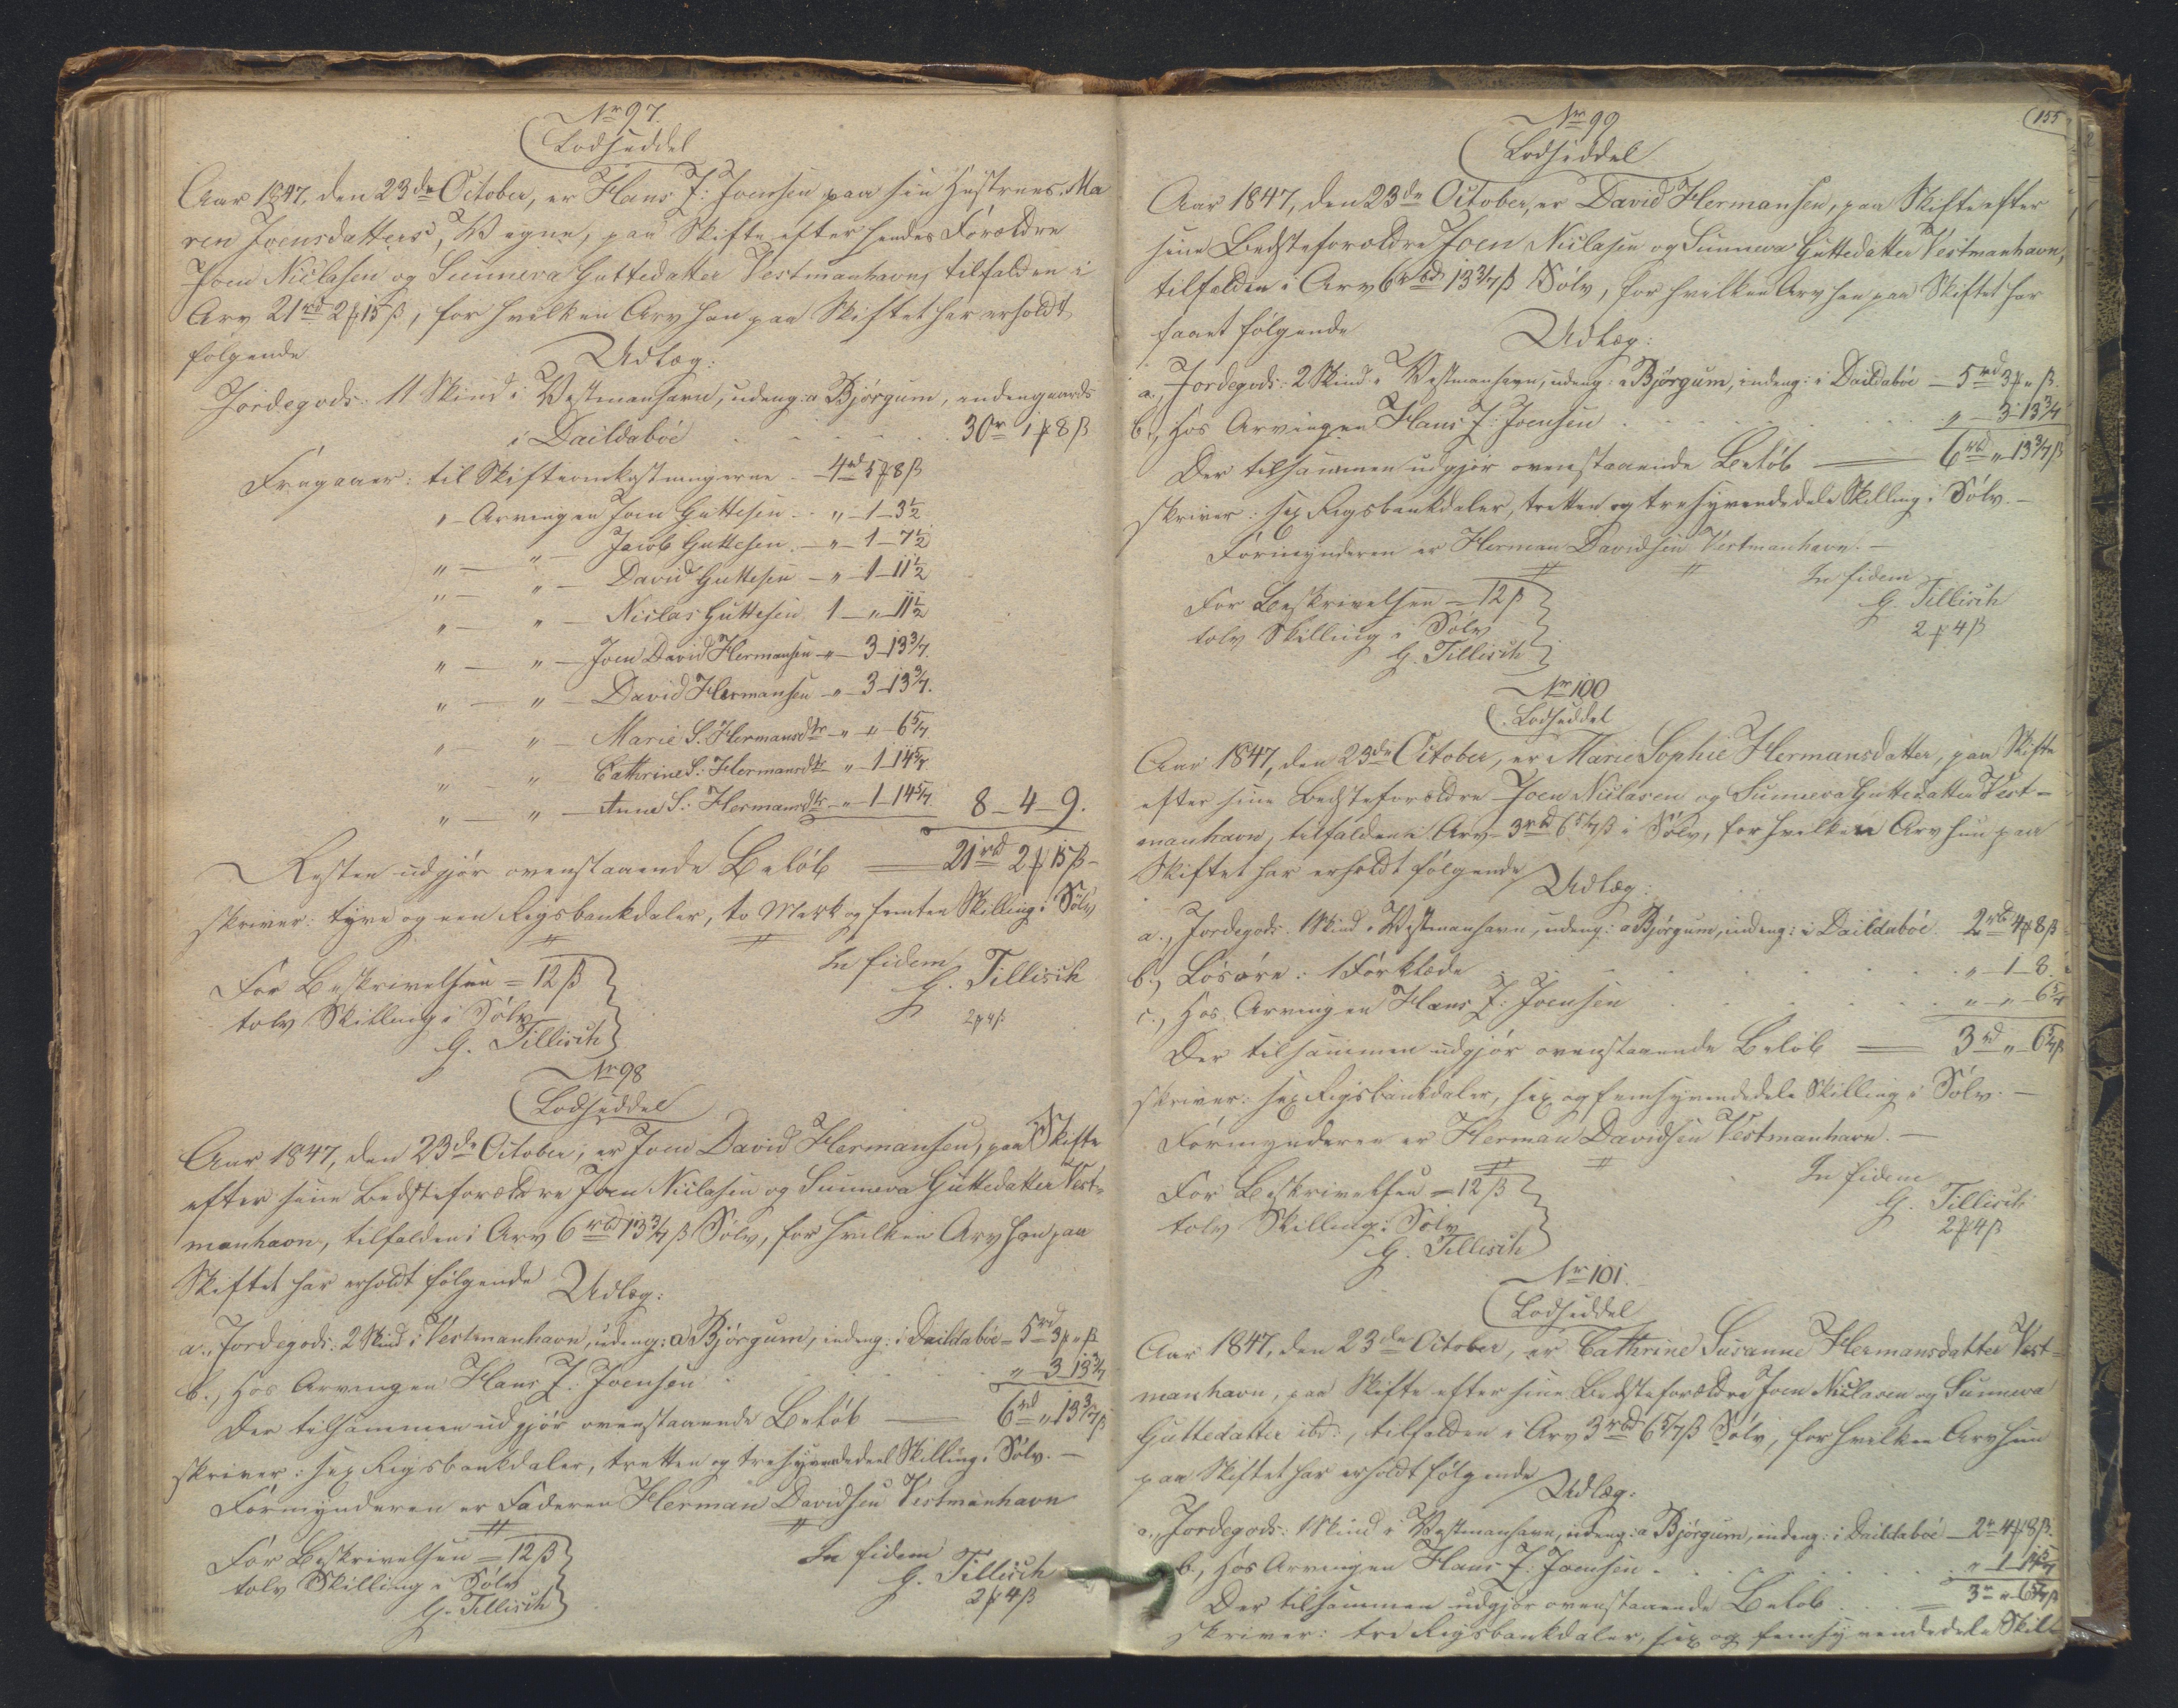 No 97.
Lodseddel
Aar 1847, den 23de October, er Hans J: Joensen paa sin Hustrues Ma
ren Joensdatters, Vegne, paa Skifte efter hendes Forældre
Joen Niclasen og Sunneva Guttedatter Vestmanhavn, tilfalden i
Arv 21rd 2 ℳ 15 β, for hvilken Arv han paa Skiftet har erholdt
følgende
Udlæg:
Jordegods: 11 Skind i Vestmanhavn, udeng: a Bjørgum, indengaards
i Daildabøe . . . . . 30r 1 ℳ 8 β
Fragaaer: til Skifteomkostningerne - 4rd 5 ℳ 8 β
" - Arvingen Joen Guttesen - " - 1 - 3½
" - " - Jacob Guttesen - " - 1 - 7½
" - " - David Guttesen - " - 1 - 11½
" - " - Niclas Guttesen 1 - " - 11½
" - " - Joen David Hermansen - " - 3 - 13 3/7.
" - " - David Hermansen - " - 3 - 13 3/7.
" - " - Marie S. Hermansdtr - " - " - 6 5/7
" - " - Cathrine S: Hermansdtr " - 1 - 14 5/7
" - " - Anne S: Hermansdtr - " - 1 - 14 5/7 8 - 4 - 9.
Resten udgjør ovenstaaende Beløb — 21rd 2 ℳ 15 β -
skriver: tyve og een Rigsbankdaler, to Mark og femten Skilling i Sølv
For Beskrivelsen = 12 β
tolv Skilling i Sølv
G. Tillisch
In fidem
G. Tillisch
2 ℳ 4 β
No 98
Lodseddel
Aar 1847, den 23de October, er Joen David Hermansen, paa Skifte
efter sine Bedsteforældre Joen Niclasen og Sunneva Guttedatter Vest=
manhavn, tilfalden i Arv 6rbd 13 3/7 β Sølv, for hvilken Arv han paa
Skiftet har erholdt følgende Udlæg:
a., Jordegods: 2 Skind i Vestmanhavn, udeng: a Bjørgum, indeng: i Daildabøe - 5rd 3 ℳ " β
b., hos Arvingen Hans J: Joensen . . . " 3 13 3/7
Der tilsammen udgjør ovenstaaende Beløb — 6rd " 13 3/7 β
skriver: sex Rigsbankdaler, tretten og tresyvendedeel Skilling i Sølv. -
Formynderen er Faderen Herman Davidsen Vestmanhavn
For Beskrivelsen = 12 β
tolv Skilling i Sølv
G. Tillisch
In fidem
G. Tillisch
2 ℳ 4 β
155
No 99
Lodseddel
Aar 1847, den 23de October, er David Hermansen, paa Skifte efter
sine Bedsteforældre Joen Niclasen og Sunneva Guttedatter Vestmanhavn,
tilfalden i Arv 6rbd 13 3/7 β Sølv, for hvilken Arv han paa Skiftet har
faaet følgende
Udlæg:
a., Jordegods: 2 Skind i Vestmanhavn, udeng: a Bjørgum, indeng: i Daildabøe - 5rd 3 ℳ " β.
b., hos Arvingen Hans J: Joensen . . . " - 3 - 13 3/7
Der tilsammen udgjør ovenstaaende Beløb — 6rd " 13 3/7 β
skriver: sex Rigsbankdaler, tretten og tresyvendedele Skilling i Sølv. -
Formynderen er Herman Davidsen Vestmanhavn. -
For Beskrivelsen = 12 β
tolv Skilling i Sølv
G. Tillisch
In fidem
G. Tillisch
2 ℳ 4 β
No 100
Lodseddel
Aar 1847, den 23de October, er Marie Sophie Hermansdatter, paa Skifte
efter sine Bedsteforældre Joen Niclasen og Sunneva Guttedatter Vest=
manhavn, tilfalden i Arv 3rbd 6 5/7 β i Sølv, for hvilken Arv hun paa
Skiftet har erholdt følgende Udlæg:
a., Jordegods: 1 Skind i Vestmanhavn, udeng: a Bjørgum, indeng: i Daildabøe. 2rbd 4 ℳ 8 β
b., Løsøre: 1 Forklæde . . . " - 1 - 8.
c., hos Arvingen Hans J: Joensen . . . " - " - 6 5/7
Der tilsammen udgjør ovenstaaende Beløb — 3rd " 6 5/7 β
skriver: sex Rigsbankdaler, sex og femsyvendedele Skilling i Sølv. -
Formynderen er Herman Davidsen Vestmanhavn. -
For Beskrivelsen = 12 β
tolv Skilling i Sølv
G. Tillisch
In fidem
G. Tillisch
2 ℳ 4 β
No 101.
Lodseddel
Aar 1847, den 23de October, er Cathrine Susanne Hermansdatter Vest=
manhavn, paa Skifte efter sine Bedsteforældre Joen Niclasen og Sunneva
Guttedatter ibd:, tilfalden i Arv 3rbd 6 5/7 β Sølv, for hvilken Arv hun
paa Skiftet har erholdt følgende
Udlæg:
a., Jordegods: 1 Skind i Vestmanhavn, udeng: a Bjørgum, indeng: i Daildabøe - 2r 4 ℳ 8 β.
b., hos Arvingen Hans J: Joensen . . . " 1 14 5/7
Der tilsammen udgjør ovenstaaende Beløb . . . 3r " 6 5/7 β
skriver: tre Rigsbankdaler, sex og femsyvendedele Skill